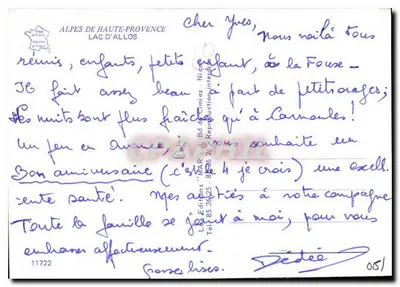 ALPES DE HAUTE-PROVENCE
LAC D'ALLOS
Cher Yves,
Nous voilà tous
réunis, enfants, petits enfant, à la Fouse -
Il fait assez beau à part de petits orages;
les nuits sont plus fraîches qu'à Carnoules!
Un peu en avance, je vous souhaite un
Bon anniversaire (c'est le 4 je crois) une excell
ente santé. Mes amitiés à votre compagne
Toute la famille se joint à moi, pour vous
embrasser affectueusement.
Grosses bises. Dédée
11722
015/